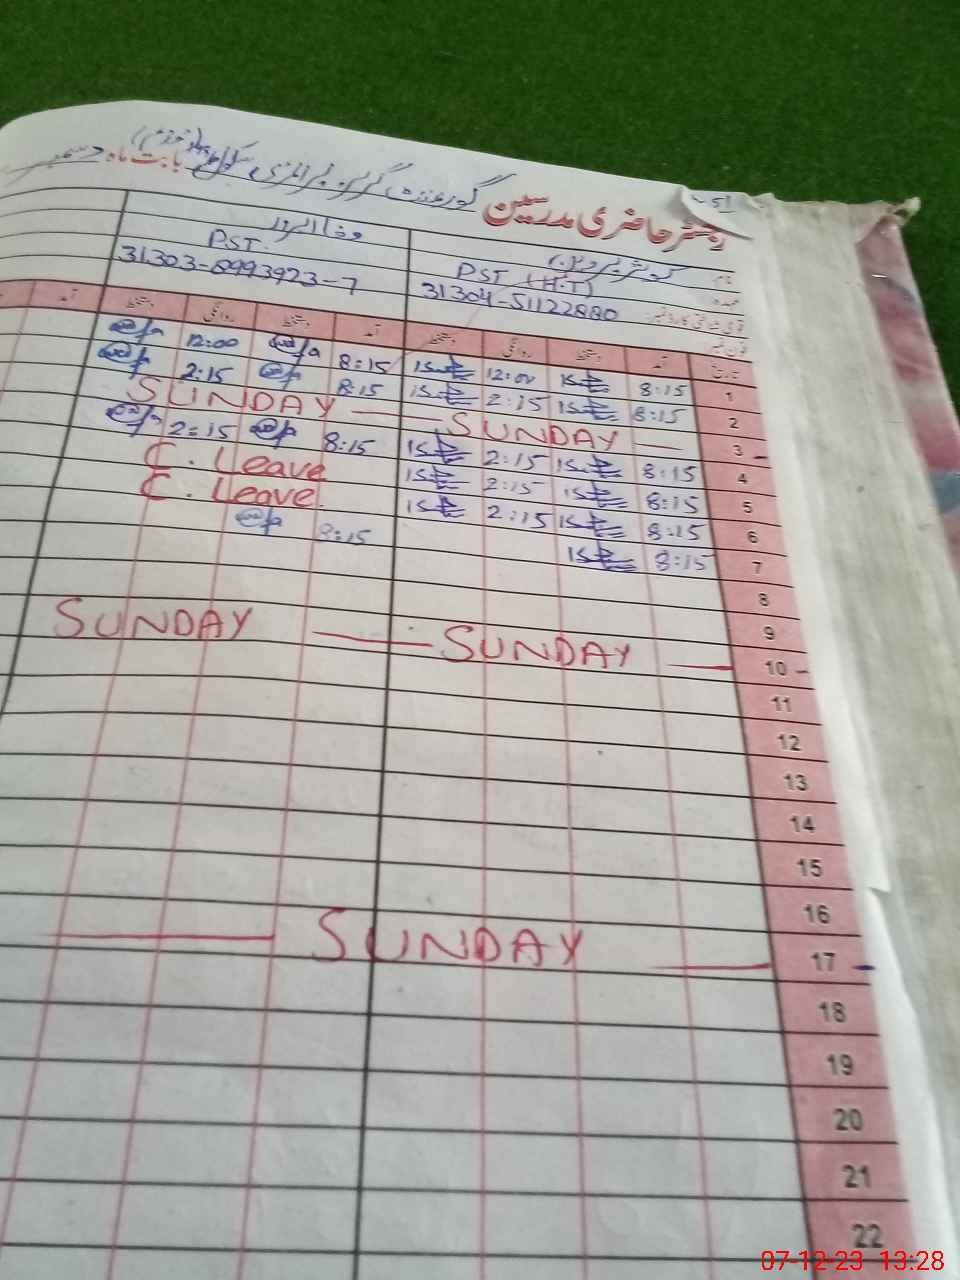 51
رجسٹر حاضری مدرسین گورنمنٹ گرلز پرائمری سکول بابت ماہ دسمبر
نام
عہدہ PST (H.T) PST
قومی شناختی کارڈ نمبر 31304-51122880 31303-8993923-7
فون نمبر
تاریخ آمد دستخط روانگی دستخط آمد دستخط روانگی دستخط آمد
1 8:15 12:00 8:15 12:00
2 8:15 2:15 8:15 2:15
3 SUNDAY SUNDAY
4 8:15 2:15 8:15 2:15
5 8:15 2:15 C. Leave
6 8:15 2:15 C. Leave
7 8:15 8:15
8
9
10 SUNDAY SUNDAY
11
12
13
14
15
16
17 SUNDAY
18
19
20
21
22
07-12-23 13:28